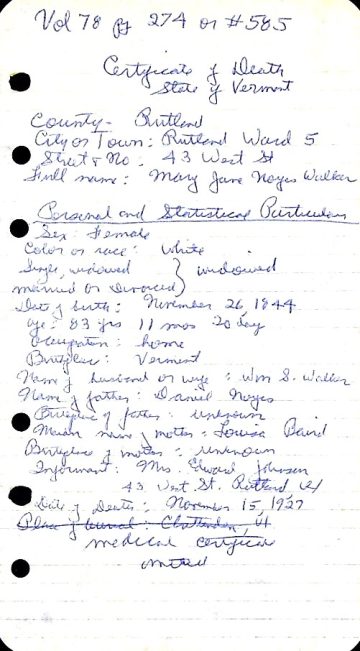 Vol 78 pg 274 or #585
Certificate of Death
State of Vermont
County - Rutland
City or Town: Rutland Ward 5
Street & No: 43 West St
Full name: Mary Jane Noyes Walker
Personal and Statistical Particulars
Sex: Female
Color or race: White
Single, widowed } widowed
married or divorced
Date of birth: November 26 1844
age: 83 yrs 11 mos 20 day
Occupation: home
Birthplace: Vermont
Name of husband or wife: Wm S. Walker
Name of father: Daniel Noyes
Birthplace of father: unknown
Maiden name of mother: Louisa Baird
Birthplace of mother: unknown
Informant: Mrs. Edward Johnson
43 West St. Rutland Vt
Date of Death: November 15, 1927
Place of burial: Chittenden, Vt
medical certificate
omitted